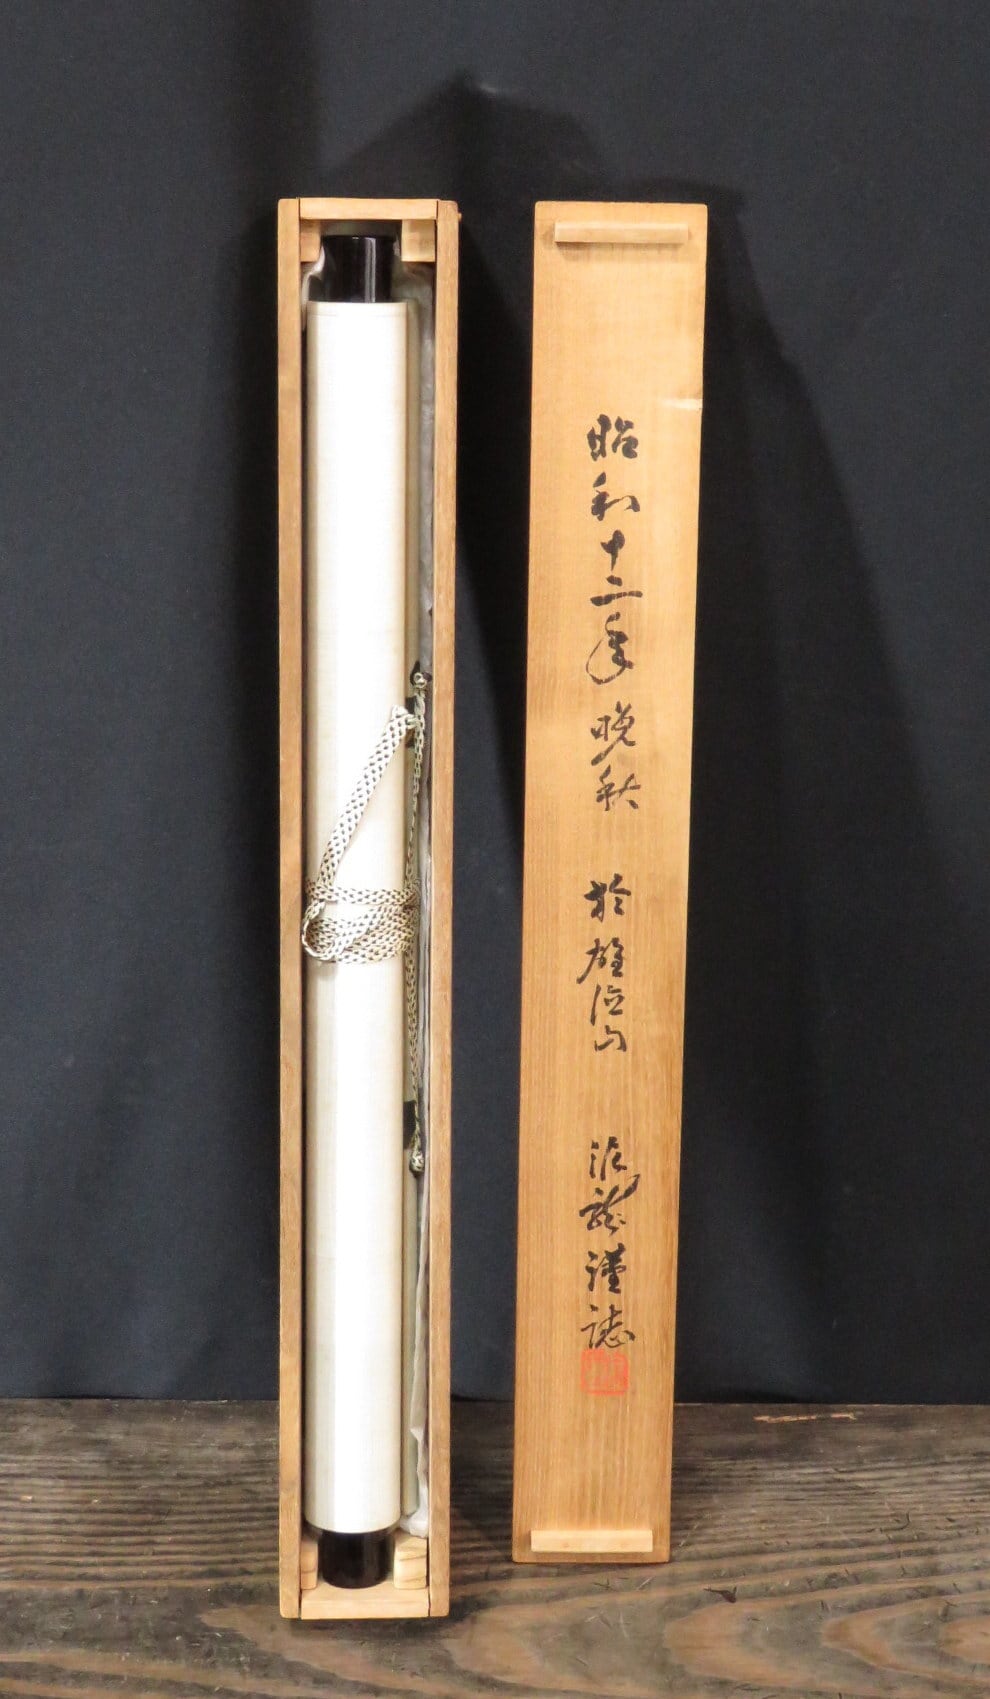 昭和十二年晩秋 於雄徳山 泥龍謹誌